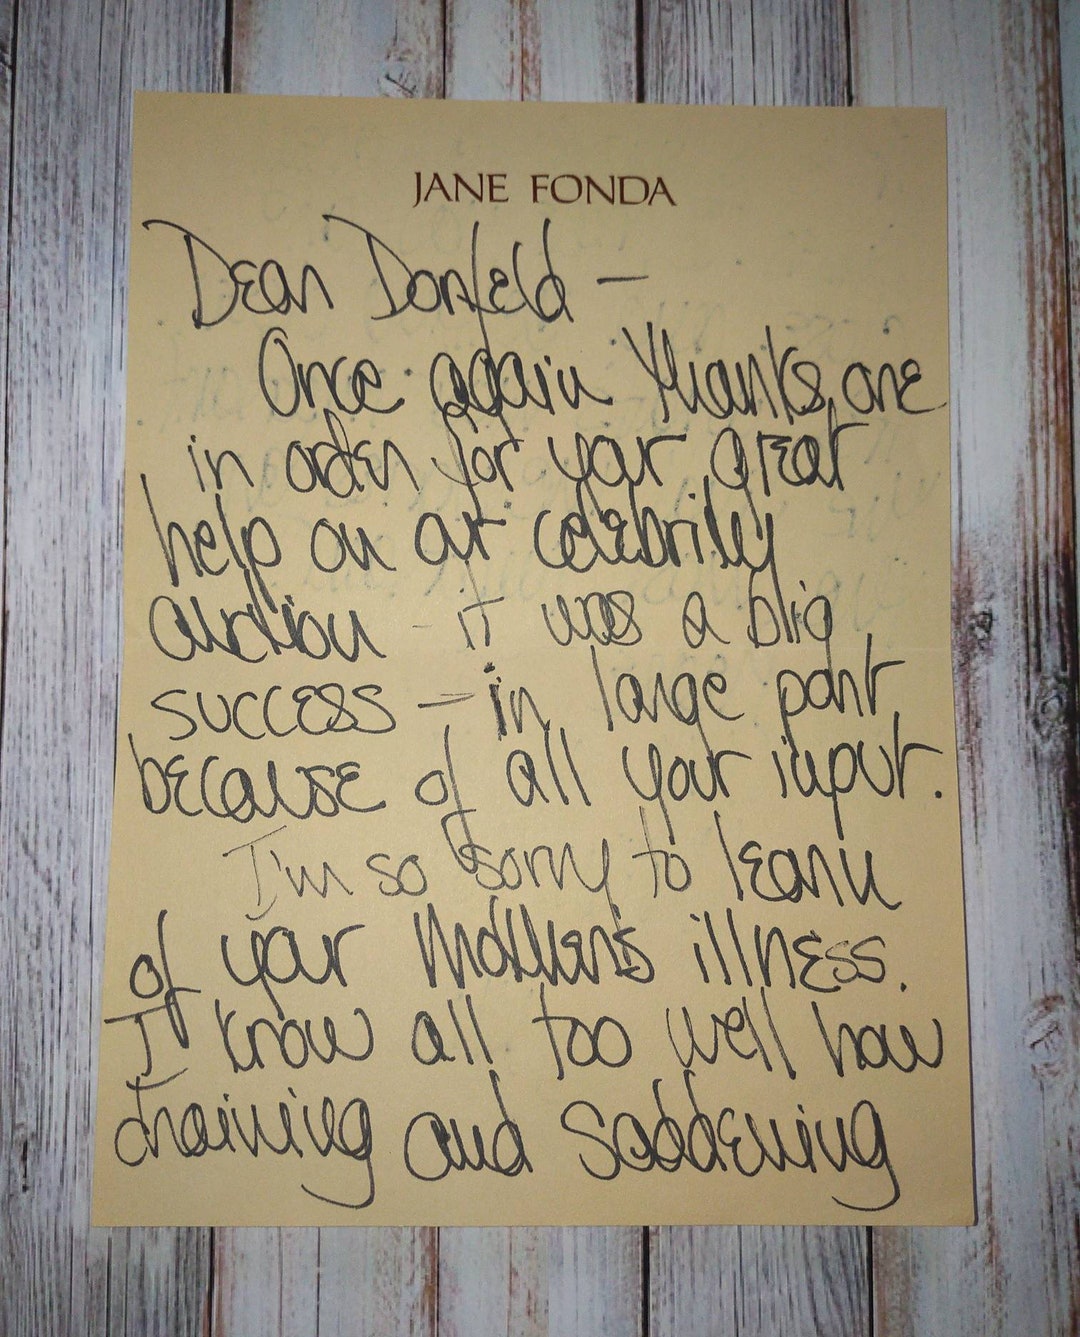 JANE FONDA
Dear Donfeld —
Once again thanks are
in order for your great
help on our celebrity
auction - it was a big
success — in large part
because of all your input.
I'm so sorry to learn
of your Mother's illness.
I know all too well how
draining and saddening